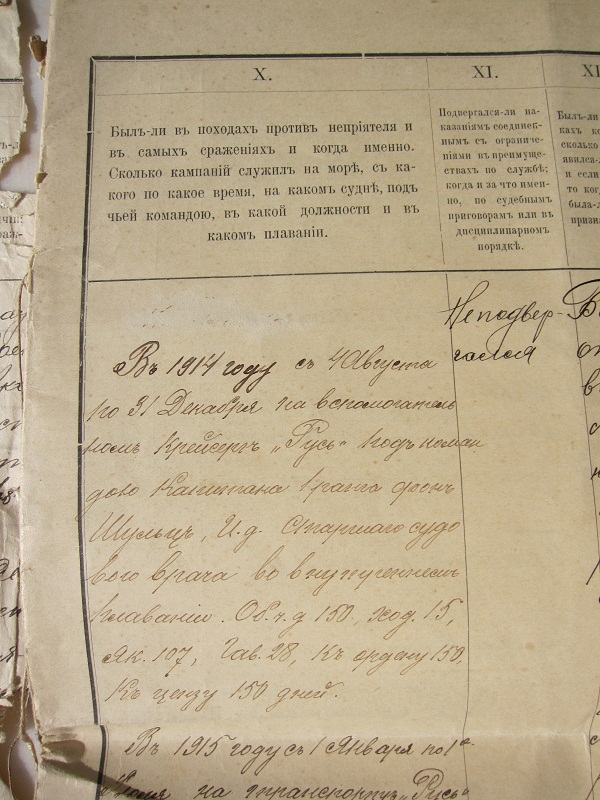 X.
Былъ-ли въ походахъ противъ непріятеля и
въ самыхъ сраженіяхъ и когда именно.
Сколько кампаній служилъ на морѣ, съ ка-
кого по какое время, на какомъ суднѣ, подъ
чьей командою, въ какой должности и въ
какомъ плаваніи.
XI.
Подвергался-ли на-
казаніямъ соединен-
нымъ съ ограниче-
ніями въ преимуще-
ствахъ по службѣ;
когда и за что имен-
но, по судебнымъ
приговорамъ или въ
дисциплинарномъ
порядкѣ.
XI
Былъ-ли
сколько
явился-л
и если
то когд
была-л
призн
Въ 1914 году съ 4 Августа
по 31 Декабря на вспомогатель
номъ крейсерѣ „Русь“ подъ коман
дою Капитана 1 ранга фонъ
Шульцъ, И.д. Старшаго судо
вого врача во внутреннемъ
плаваніи. Об.ч.д 150, ход. 15,
Як. 107, Гав. 28, Къ ордену 150,
Къ цензу 150 дней.
Въ 1915 году съ 1 Января по 1е
Іюля на транспортѣ „Русь“
Не подвер-
гался